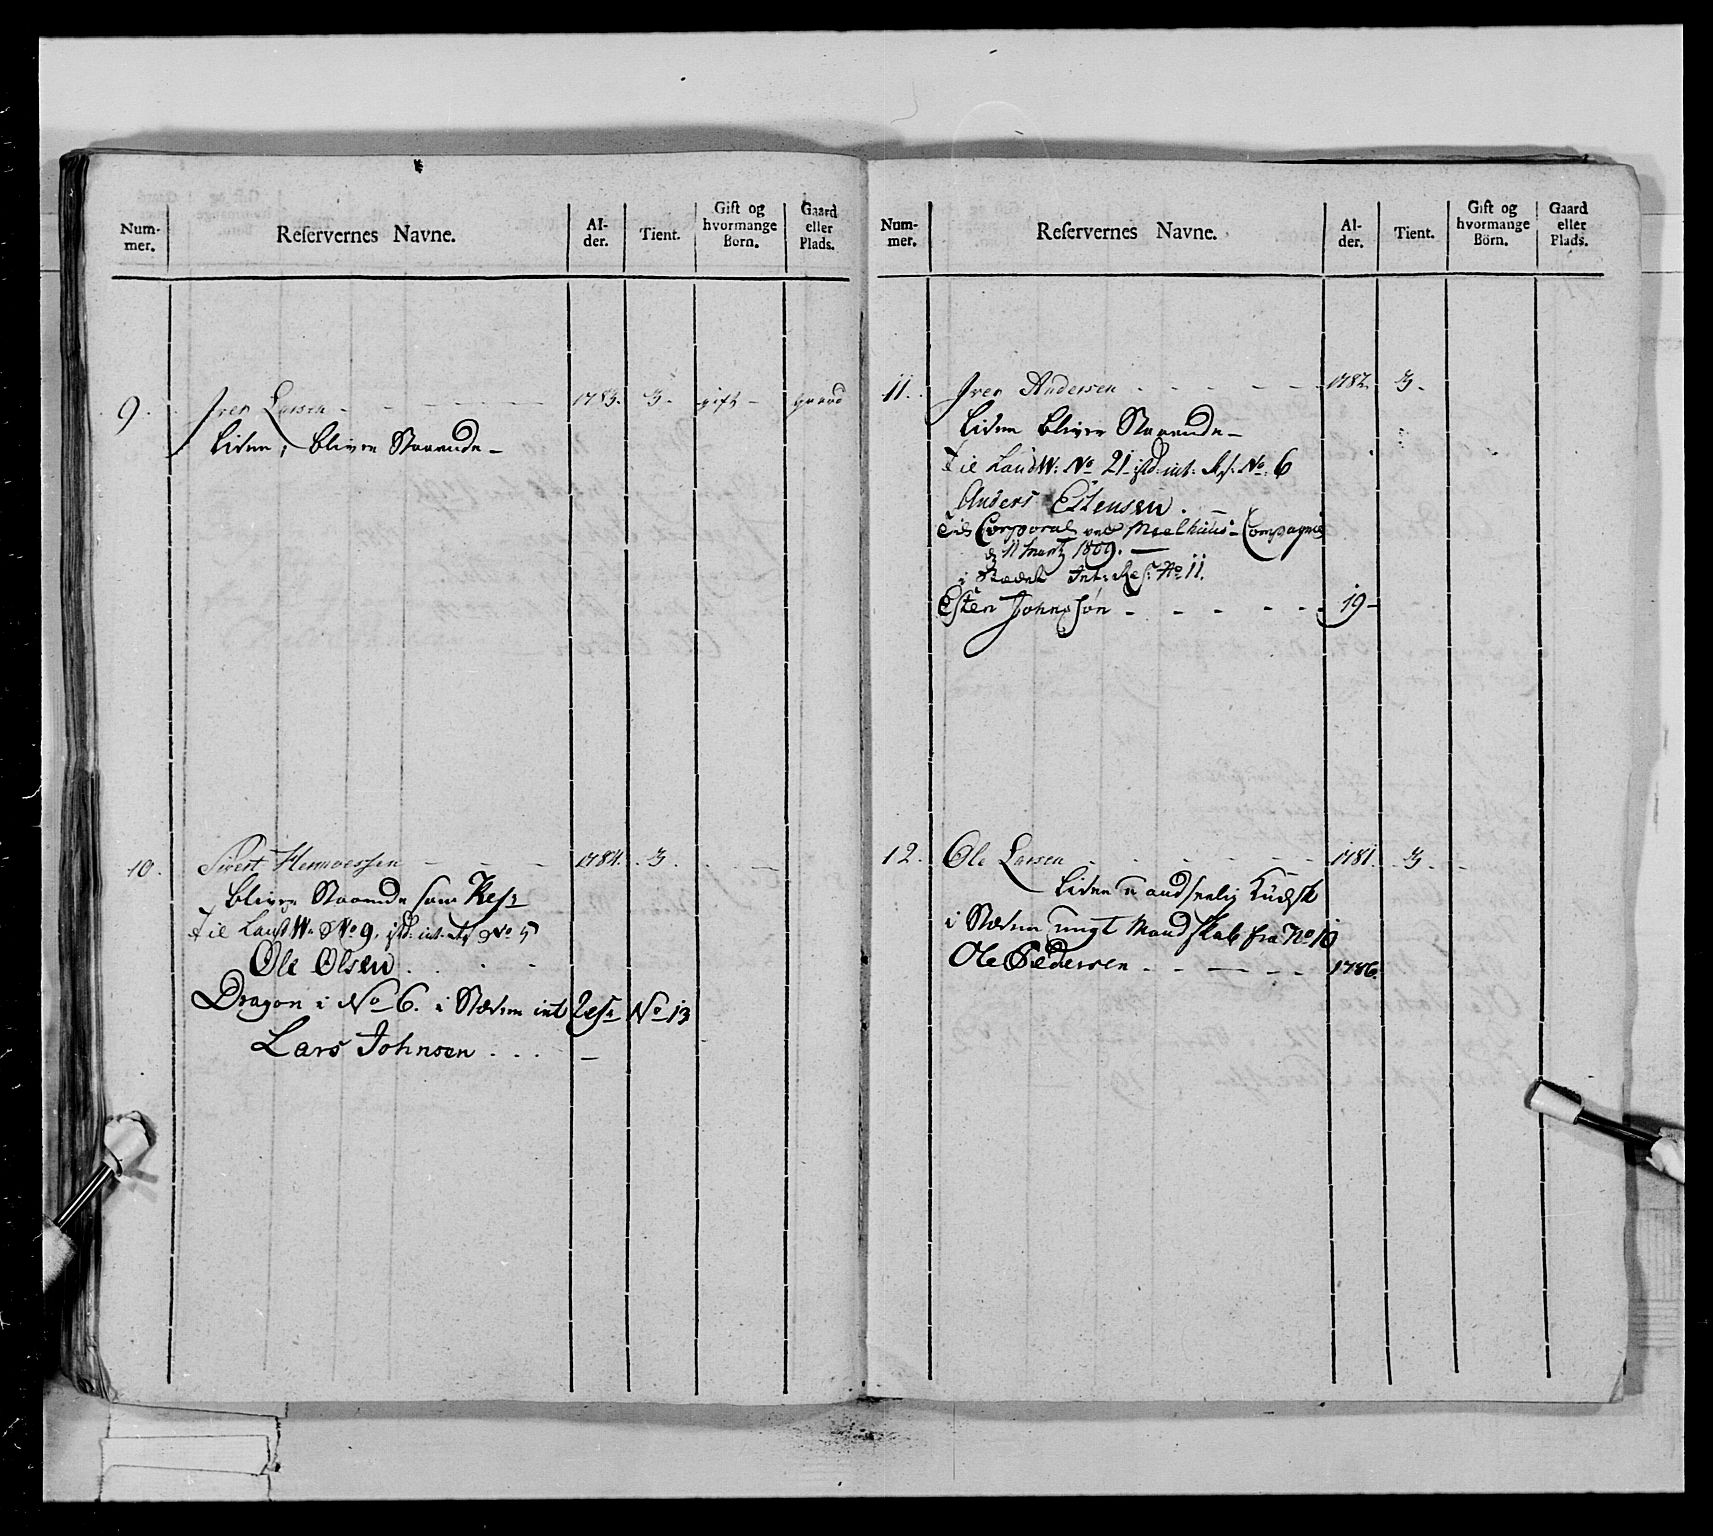 Num-
mer.
Reservernes Navne.
Al-
der.
Tient.
Gift og
hvormange
Born.
Gaard
eller
Plads.
9. Iver Larsen - 1783. 3. gift - gaard
Liden, bliver Staaende -
10. Sivert 1784. 3.
bliver Staaende som Res:
Til LandW: No 9. istd: int: No 5
Ole Olsen
Dragon i No 6. i Stæden int Res: No 13
Lars Johnsen
Num-
mer.
Reservernes Navne.
Al-
der.
Tient.
Gift og
hvormange
Börn.
Gaard
eller
Plads.
11. Iver Andersen - 1782. 3.
Liden bliver Staaende -
Til LandW: No 21 istd: int: Rs: No: 6
Anders Estensen
Corporal ved Meelhuus: Compagnie
d 11 Martz 1809.
i Stædet Int: Res: No 11.
Esten Johnssøn - 19 -
12. Ole Larsen - 1781. 3.
Liden
i Stæden ungt Mandskab fra No 10
Ole Pedersen - 1786.